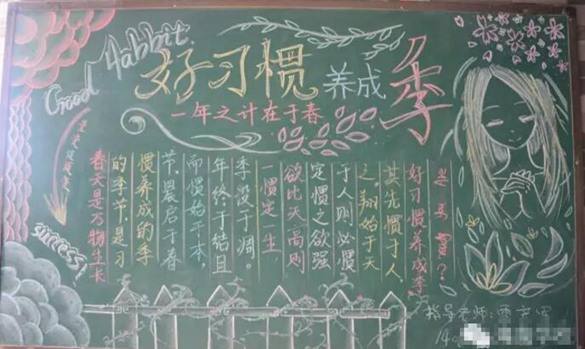 Good Habbit
好习惯 养成 季
一年之计在于春
春天是万物生长
的季节,是习
惯养成的季
节,晨启于春
而惯始于本,
年终于结且
季没于凋。
一惯定一生
欲比天高则
定惯之欲强
于人则必惯
之,翔始于天
其先惯于人,
好习惯养成季
success!
指导老师: